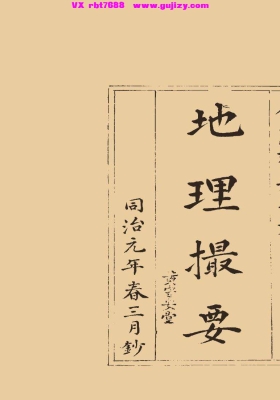 VX rbt7688  www.gujizy.com
地理撮要
同治元年春三月鈔